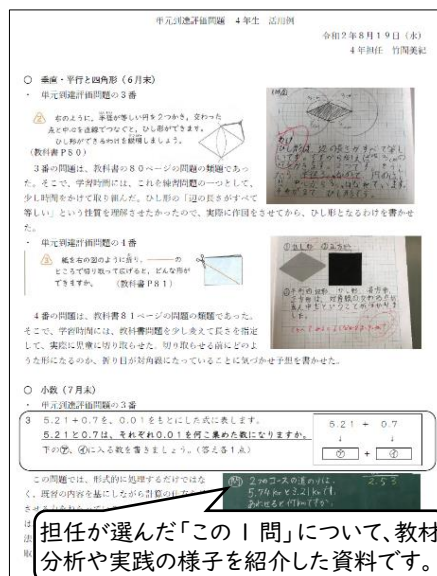 単元到達評価問題 4年生 活用例
令和2年8月19日（水）
4年担任 竹間美紀
○ 垂直・平行と四角形（6月末）
・ 単元到達評価問題の3番
右のように、半径が等しい円を2つかき、交わった
点と中心を直線でつなぐと、ひし形ができます。
ひし形ができるわけを説明しましょう。
（教科書P80）
3番の問題は、教科書の80ページの問題の類題であっ
た。そこで、学習時間には、これを練習問題の一つとして、
少し時間をかけて取り組んだ。ひし形の「辺の長さがすべて
等しい」という性質を理解させたかったので、実際に作図をさせてから、ひし形となるわけを書かせ
た。
・ 単元到達評価問題の4番
紙を右の図のように折り、
のところで切り取って広げると、どんな形が
できますか。 （教科書P81）
①ひし形 ②正方形
4番の問題は、教科書81ページの類題であった。
そこで、学習時間には、教科書問題を少し変えて長さを指定
して、実際に児童に切り取らせた。切り取らせる前にどのよ
うな形になるのか、折り目が対角線になっていることに気づかせ予想を書かせた。
○ 小数（7月末）
・ 単元到達評価問題の3番
3 5.21+0.7を、0.01をもとにした式に表します。
5.21と0.7は、それぞれ0.01を何こ集めた数になりますか。
下の㋐、㋑に入る数を書きましょう。（答え各1点）
5.21 + 0.7
↓ ↓
㋐ + ㋑
この問題では、形式的に処理するだけではな
く、既習の内容を基にしながら計算の仕方を
問 2つのコースの道のりは、
5.74kmと3.21kmです。
あわせると何kmですか。
2.53
担任が選んだ「この1問」について、教材
分析や実践の様子を紹介した資料です。